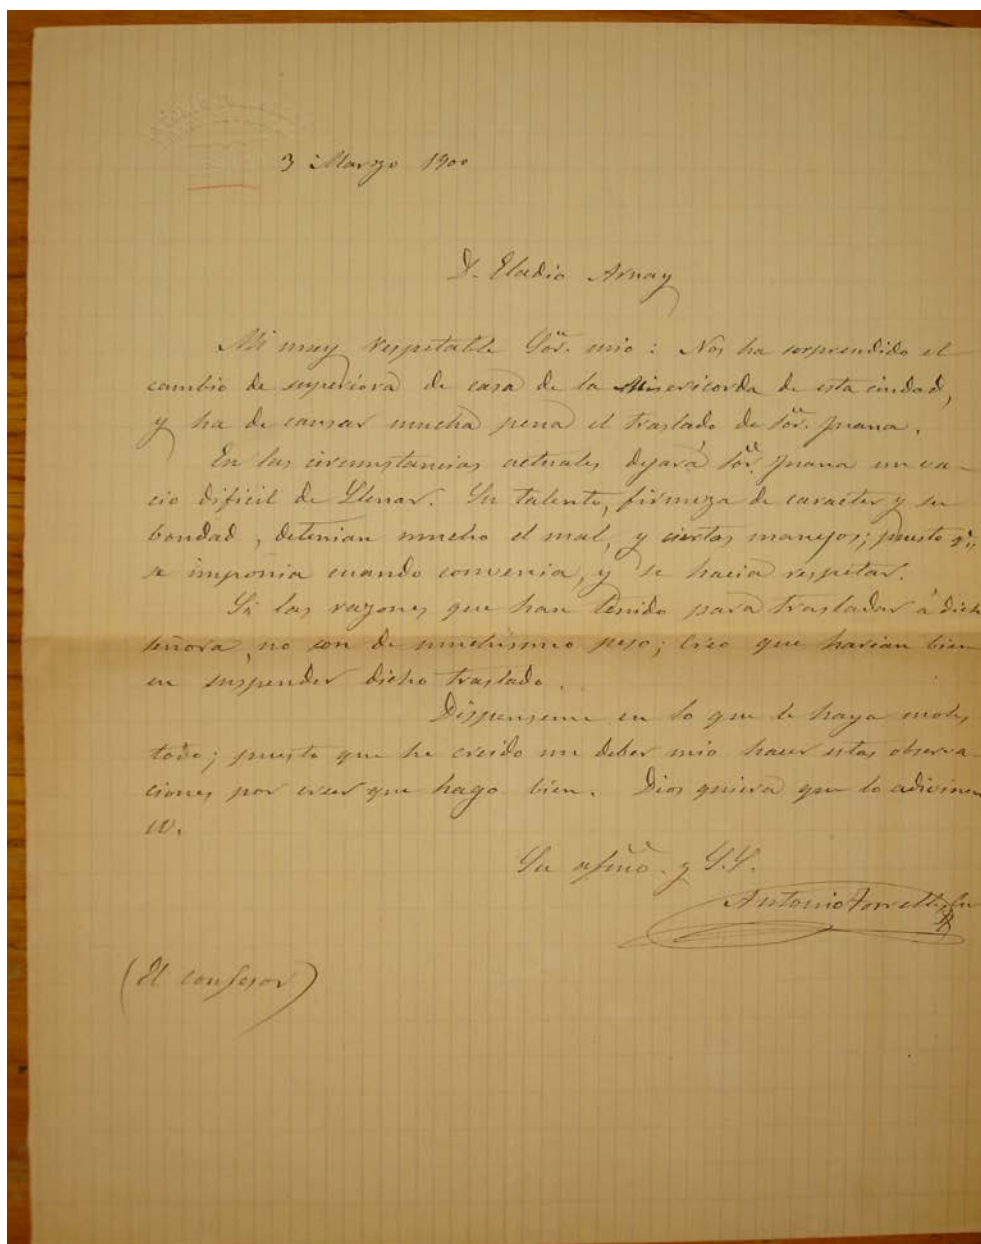 3 Marzo 1900
D. Eladio Arnay
Mi muy respetable Sor. mio: Nos ha sorprendido el
cambio de superiora de casa de la Misericorda de esta ciudad,
y ha de causar mucha pena el traslado de Sor. Juana.
En las circumstancias actuales dejará Sor. Juana un va-
cio dificil de Llenar. Su talento, firmeza de caracter y su
bondad, detenian mucho el mal, y ciertos manejos; puesto q.
se imponia cuando convenia, y se hacia respetar.
Si las razones que han tenido para trasladar á dicha
señora, no son de muchisimo peso; creo que harian bien
en suspender dicho traslado.
Dispenseme en lo que le haya moles
tado; puesto que he creido un deber mio hacer estas observa
ciones por creer que hago bien. Dios quiera que lo adivinen
W.
Su afmo. y S.S.
Antonio
(El confesor)